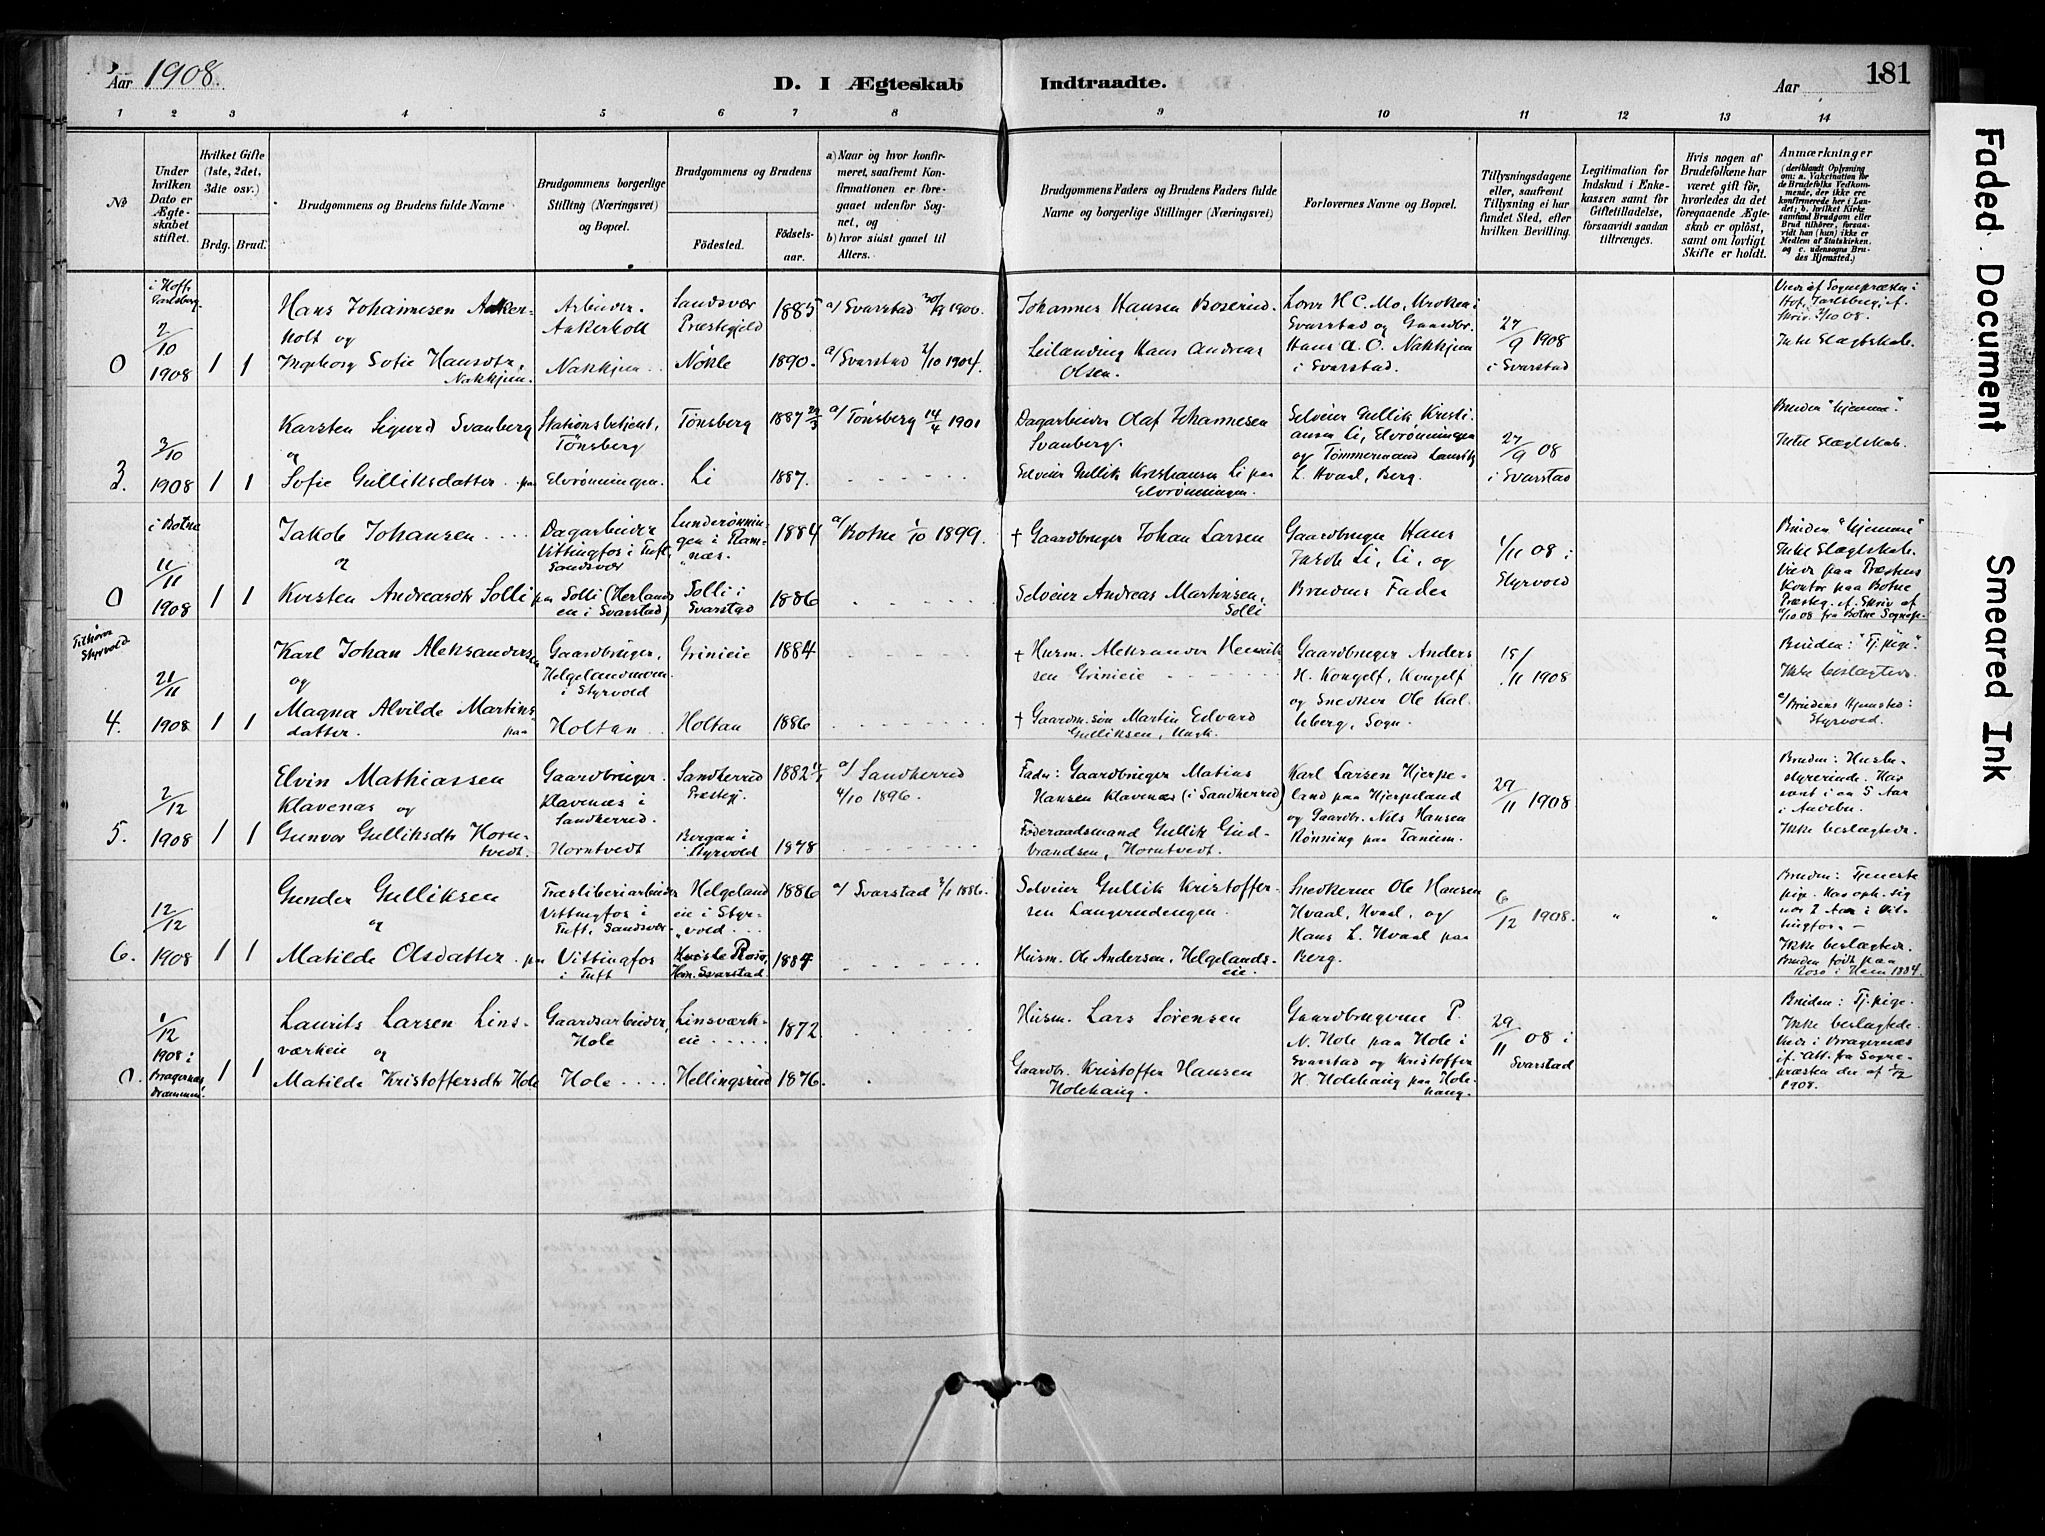 Aar 1908.
D. I Ægteskab Indtraadte.
Aar
181
1 2 3 4 5 6 7 8 9 10 11 12 13 14
No
Under hvilken Dato er Ægteskabet stiftet.
Hvilket Gifte (1ste, 2det, 3die osv.)
Brdg. Brud.
Brudgommens og Brudens fulde Navne
Brudgommens borgerlige Stilling (Næringsvei) og Bopæl.
Brudgommens og Brudens
Fødested.
Fødselsaar.
a) Naar og hvor konfirmeret, saafremt Konfirmationen er foregaaet udenfor Sognet, og
b) hvor sidst gaaet til Alters.
Brudgommens Faders og Brudens Faders fulde Navne og borgerlige Stillinger (Næringsvei)
Forlovernes Navne og Bopæl.
Tillysningsdagene eller, saafremt Tillysning ei har fundet Sted, efter hvilken Bevilling.
Legitimation for Indskud i Enkekassen samt for Giftetilladelse, forsaavidt saadan tiltrænges.
Hvis nogen af Brudefolkene har været gift før, hvorledes da det foregaaende Ægteskab er opløst, samt om lovligt Skifte er holdt.
Anmærkninger (deriblandt Oplysning om: a. Vakcination for de Brudefolks Vedkommende, der ikke ere konfirmerede her i Landet; b. hvilket Kirkesamfund Brudgom eller Brud tilhører, forsaavidt han (hun) ikke er Medlem af Statskirken, og c. udensogns Brudes Hjemsted.)
0
2/10 1908
1 1
Hans Johannesen Aakerholt og
Ingeborg Sofie Hansdtr. Nakkjem.
Arbeider. Aakerholt
Nakkjem
Sandsvær Præstegjeld
Nøkle
1885
1890.
a/ Svarstad 30/9 1900.
a/ Svarstad 2/10 1904.
Johannes Hansen Boserud.
Leilænding Hans Andreas Olsen.
Svarstad og Gaardbr. Hans A. O. Nakkjem i Svarstad.
27/9 1908 i Svarstad
Ikke Slægtskab.
3.
3/10 1908
1 1
Karsten Sigurd Svanberg og
Sofie Gulliksdatter paa
Stationsbetjent, Tønsberg
Elvrønningen.
Tønsberg
Li
1887
1887.
a/ Tønsberg 14/4 1901
Dagarbeider Olaf Johannesen Svanberg.
Selveier Gullik Kristiansen Li paa Elvrønningen.
Selveier Gullik Kristiansen Li, Elvrønningen og Tømmermand Lauritz L. Hvaal, Berg.
27/9 08 i Svarstad
Bruden "hjemme".
Ikke Slægtskab.
0
i Botne
11/11 1908
1 1
Jakob Johansen
og
Kirsten Andreasdtr Solli
Dagarbeider Vittingfos i Tuft, Sandsvær
paa Solli (Herlandeie i Svarstad)
Lunderønningen i Ramnæs.
Solli i Svarstad
1884
1886
a/ Botne 1/10 1899.
+ Gaardbruger Johan Larsen
Selveier Andreas Martinsen, Solli
Gaardbruger Hans Jakob Li, Li, og Brudens Fader
1/11 08 i Styrvold
Bruden "hjemme"
Ikke Slægtskab.
Viede paa Præstens Kontor paa Botne Præsteg.
Tilhører Styrvold
4.
21/11 1908
1 1
Karl Johan Aleksandersen
og
Magna Alvilde Martinsdatter. paa
Gaardbruger, Helgelandmoen i Styrvold
Holtan
Grinieie
Holtan
1884
1886
+ Husm. Aleksander Henriksen Grinieie
+ Gaardm.søn Martin Edvard Gulliksen, Ungk.
Gaardbruger Anders H. Kongelf, Kongelf og Snedker Ole Kalleberg, Sogn.
15/11 1908
Bruden: "Tj.pige".
Ikke beslægtede.
Brudens Hjemsted: Styrvold.
5.
2/12 1908
1 1
Elvin Mathiassen Klavenæs og
Gunvor Gulliksdtr Horntvedt.
Gaardbruger. Klavenæs i Sandherred.
Horntvedt
Sandherred Præstegj.
Bergan i Styrvold
1882
1878
a/ Sandherred 4/10 1896.
Fader: Gaardbruger Matias Hansen Klavenæs (i Sandherred)
Føderaadsmand Gullik Gudbrandsen, Horntvedt.
Karl Larsen Hjerpeland paa Hjerpeland og Gaardbr. Nils Hansen Rønning paa Tanum.
29/11 1908
Bruden: Husbestyrerinde. Har været i ca 5 Aar i Andebu.
Ikke beslægtede.
6.
12/12 1908
1 1
Gunder Gulliksen
og
Matilde Olsdatter paa
Træsliberiarbeider Vittingfos i Tuft, Sandsvær
Vittingfos i Tuft
Helgelandeie i Styrvold
Hem. Svarstad
1886
1884
a/ Svarstad
Selveier Gullik Kristoffersen Langerudengen.
Husm. Ole Andersen, Helgelandseie.
Snedkerne Ole Hansen Hvaal, Hvaal, og Hans L. Hvaal paa Berg.
6/12 1908.
" "
Bruden: Tjenestepige. Har oph. sig nær 2 Aar i Vittingfos.
Ikke beslægtede.
Bruden født paa Roso i Hem 1884.
0.
1/12 1908 i Bragernæs, Drammen.
1 1
Laurits Larsen Linsværkeie og
Matilde Kristoffersdtr Hole
Gaardsarbeider, Hole
Hole
Linsværkeie
Hellingsrud
1872
1876.
Husm. Lars Sørensen
Gaardbr. Kristoffer Hansen Holehaug.
Gaardbrugerne P. N. Hole paa Hole i Svarstad og Kristoffer H. Holehaug paa Holehaug.
29/11 08 i Svarstad
Bruden: Tj.pige.
Ikke beslægtede.
Viede i Bragernæs if. Att. fra Sognepræsten der af 1/12 1908.
Faded Document
Smeared Ink